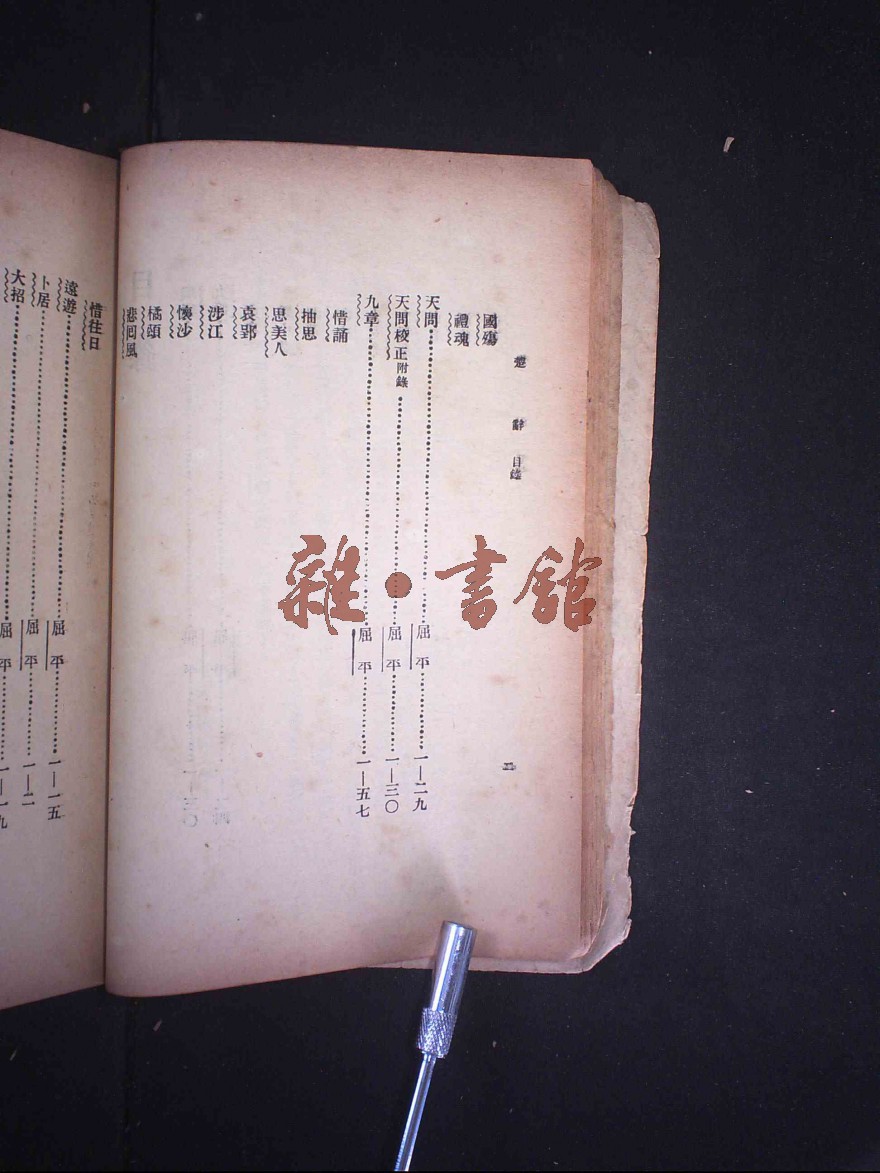 楚辭 目錄
國殤
禮魂
天問……屈平……一—二九
天問校正附錄……屈平……一—三〇
九章……屈平……一—五七
惜誦
抽思
思美人
哀郢
涉江
懷沙
橘頌
悲回風
惜往日
遠遊……屈平……一—一五
卜居……屈平……一—二
大招……屈平……一—一九
雜·書館